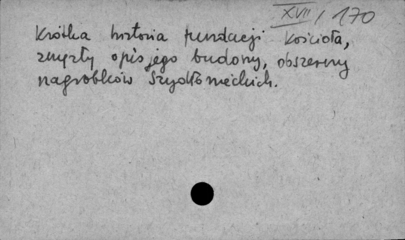 XVII / 170
Krótka historia fundacji Kościoła,
zwięzły opis jego budowy, obszerny
nagrobków Szydłowieckich.